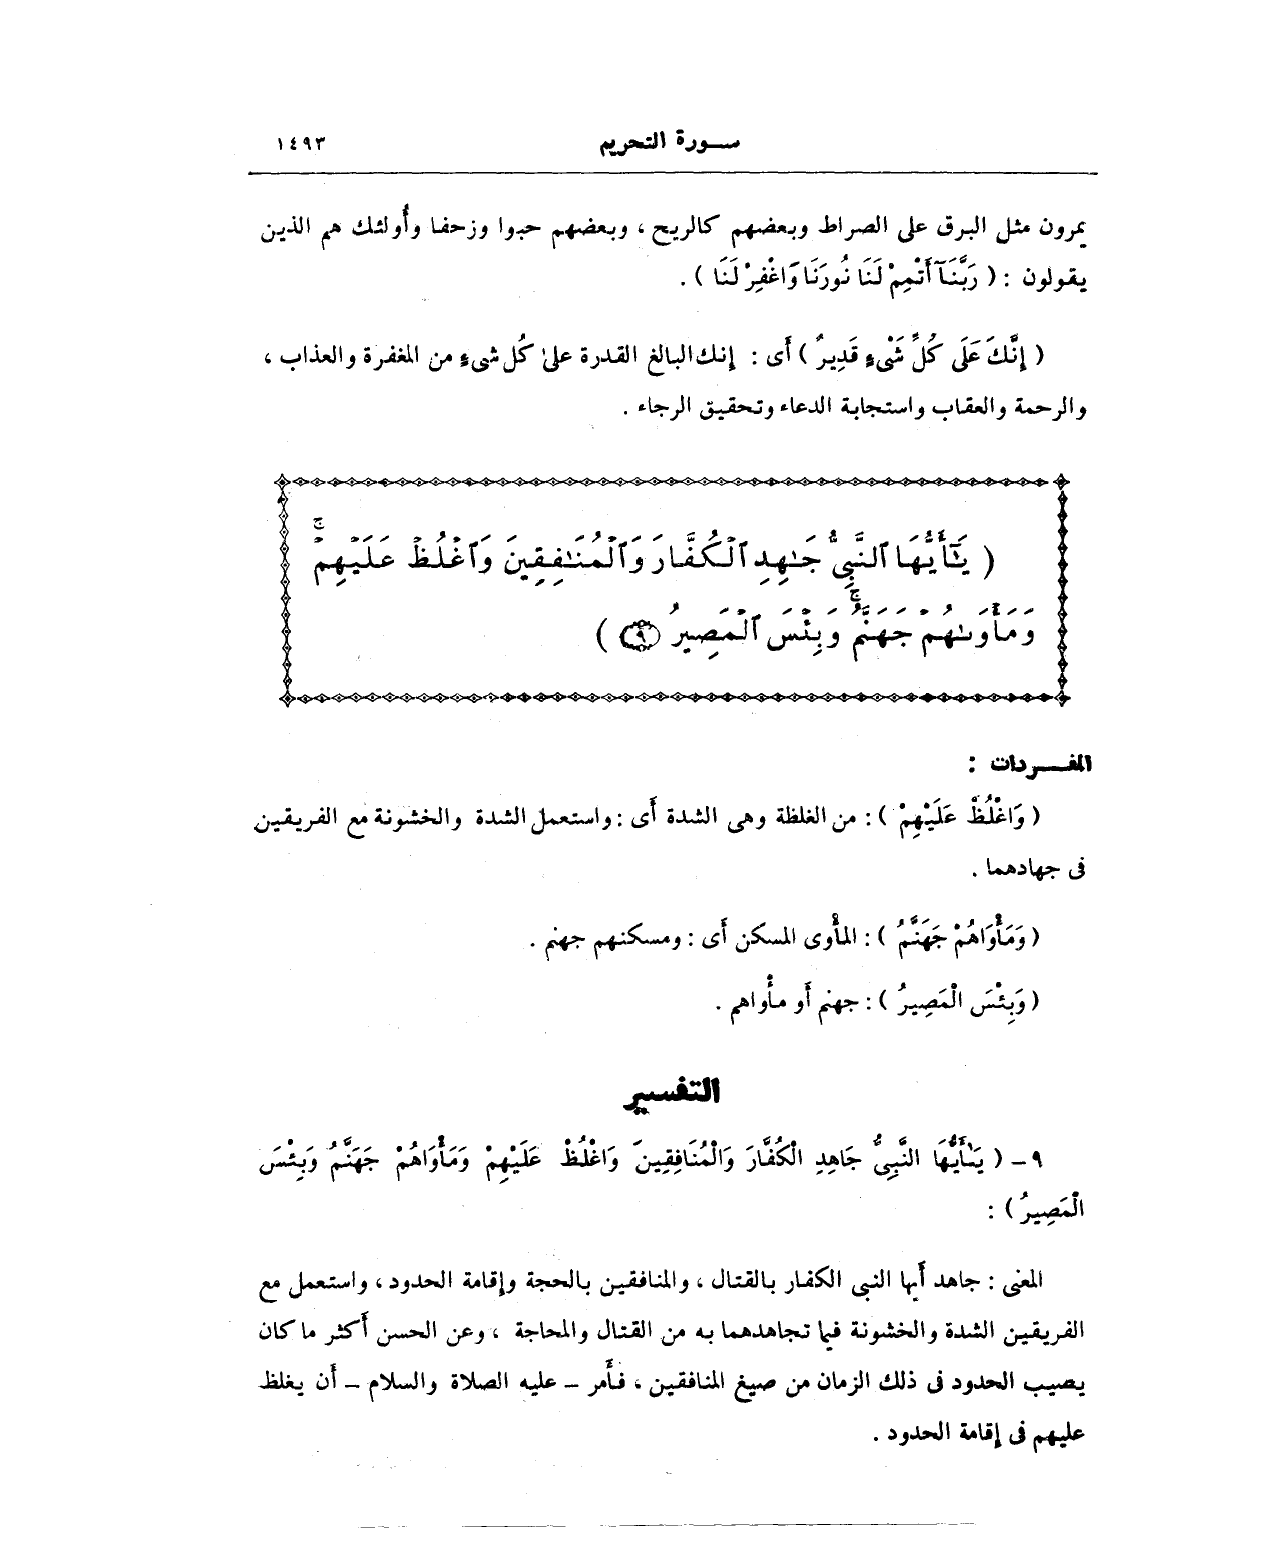 سورة التحريم ١٤٩٣
يمرون مثل البرق على الصراط وبعضهم كالريح ، وبعضهم حبوا وزحفا وأُولئك هم الذين
يقولون : ( رَبَّنَآ أَتْمِمْ لَنَا نُورَنَا وَاغْفِرْ لَنَا ) .
( إِنَّكَ عَلَى كُلِّ شَىْءٍ قَدِيرٌ ) أَى : إِنك البالغ القدرة على كُل شىءٍ من المغفرة والعذاب ،
والرحمة والعقاب واستجابة الدعاء وتحقيق الرجاء .
( يَٰٓأَيُّهَا ٱلنَّبِىُّ جَٰهِدِ ٱلْكُفَّارَ وَٱلْمُنَٰفِقِينَ وَٱغْلُظْ عَلَيْهِمْ ۚ
وَمَأْوَىٰهُمْ جَهَنَّمُ ۚ وَبِئْسَ ٱلْمَصِيرُ ٩ )
المفردات :
( وَاغْلُظْ عَلَيْهِمْ ) : من الغلظة وهى الشدة أَى : واستعمل الشدة والخشونة مع الفريقين
فى جهادهما .
( وَمَأْوَاهُمْ جَهَنَّمُ ) : المأْوى المسكن أَى : ومسكنهم جهنم .
( وَبِئْسَ الْمَصِيرُ ) : جهنم أَو مأْواهم .
التفسير
٩ – ( يَٰٓأَيُّهَا النَّبِىُّ جَاهِدِ الْكُفَّارَ وَالْمُنَافِقِينَ وَاغْلُظْ عَلَيْهِمْ وَمَأْوَاهُمْ جَهَنَّمُ وَبِئْسَ
الْمَصِيرُ ) :
المعنى : جاهد أَيها النبى الكفار بالقتال ، والمنافقين بالحجة وإِقامة الحدود ، واستعمل مع
الفريقين الشدة والخشونة فيما تجاهدهما به من القتال والمحاجة ، وعن الحسن أَكثر ما كان
يصيب الحدود فى ذلك الزمان من صيغ المنافقين ، فأَمر – عليه الصلاة والسلام – أَن يغلظ
عليهم فى إِقامة الحدود .